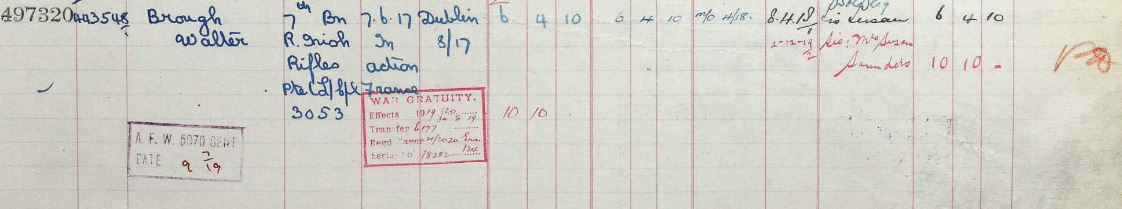 497320 493548 Brough 7th Bn 7.6.17 Dublin 6 4 10 6 4 10 m/o 4/18. 8.4.18 Sis Susan 6 4 10
Walter R. Irish In 8/17 2-12-19 Sis: Mrs Susan
Rifles action Saunders 10 10 -
Pte (L/Cpl France
3053
WAR GRATUITY.
Effects 1919
Transfer 6177
Regd
Serial "O" 18282
10 10
A. F. W. 5070 SENT
DATE 9 7/19